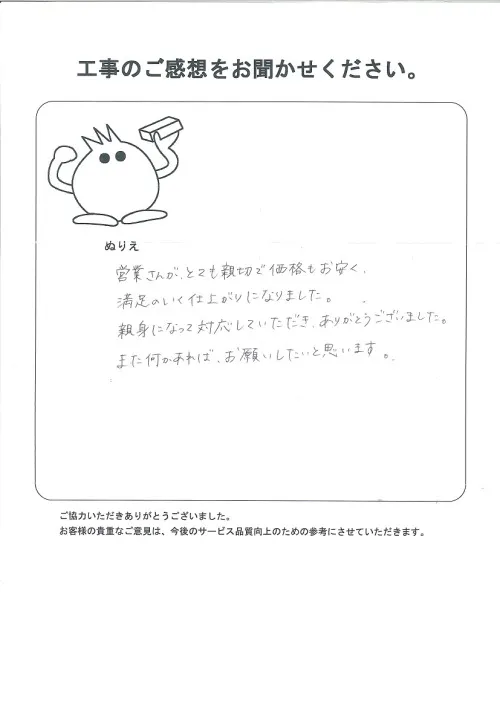 工事のご感想をお聞かせください。
ぬりえ
営業さんが、とても親切で価格もお安く、
満足のいく仕上がりになりました。
親身になって対応していただき、ありがとうございました。
また何かあれば、お願いしたいと思います。
ご協力いただきありがとうございました。
お客様の貴重なご意見は、今後のサービス品質向上のための参考にさせていただきます。